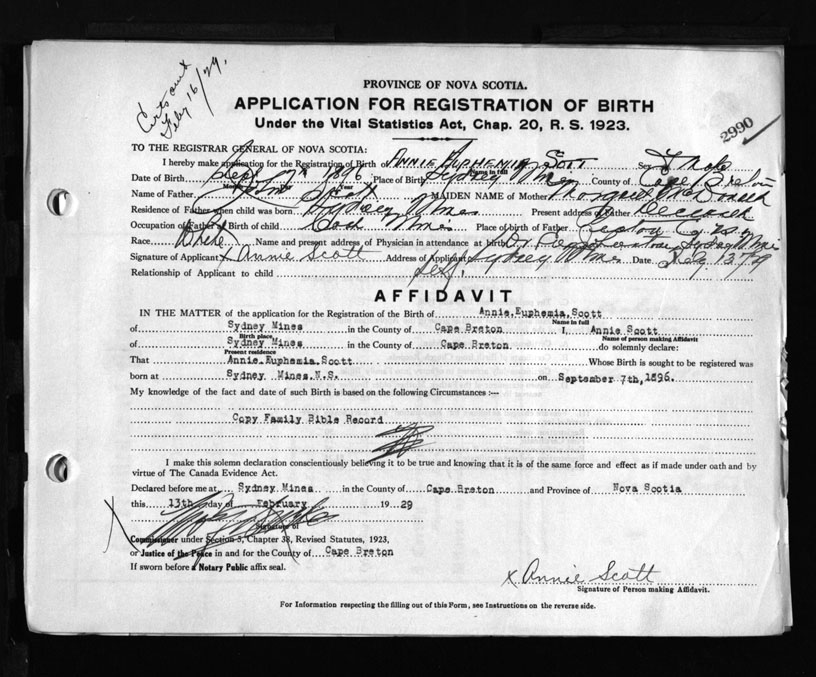 Feby 16/29.
PROVINCE OF NOVA SCOTIA.
APPLICATION FOR REGISTRATION OF BIRTH
Under the Vital Statistics Act, Chap. 20, R. S. 1923.
2990
TO THE REGISTRAR GENERAL OF NOVA SCOTIA:
I hereby make application for the Registration of Birth of Annie Euphemia Scott Sex
Name in full
Date of Birth Sept 7th 1896 Place of Birth Sydney Mines County of Cape Breton
Month Day Year
Name of Father John Scott MAIDEN NAME of Mother Margaret McDonald
Residence of Father when child was born Sydney Mines Present address of Father Deceased
Occupation of Father at Birth of child Coal Place of Birth of Father
Race White Name and present address of Physician in attendance at birth Dr Sydney Mines
Signature of Applicant x Annie Scott Address of Applicant Sydney Mines Date
Relationship of Applicant to child self.
AFFIDAVIT
IN THE MATTER of the application for the Registration of the Birth of Annie Euphemia Scott
Name in full
of Sydney Mines in the County of Cape Breton I, Annie Scott
Birth place Name of person making Affidavit
of Sydney Mines in the County of Cape Breton do solemnly declare:
Present residence
That Annie Euphemia Scott Whose Birth is sought to be registered was
born at Sydney Mines N.S. on September 7th, 1896.
My knowledge of the fact and date of such Birth is based on the following Circumstances :—
Copy Family Bible Record
I make this solemn declaration conscientiously believing it to be true and knowing that it is of the same force and effect as if made under oath and by
virtue of The Canada Evidence Act.
Declared before me at Sydney Mines in the County of Cape Breton and Province of Nova Scotia
this 13th day of February 1929
Signature of
Commissioner under Section 3, Chapter 38, Revised Statutes, 1923,
or Justice of the Peace in and for the County of Cape Breton
If sworn before a Notary Public affix seal.
x Annie Scott
Signature of Person making Affidavit.
For Information respecting the filling out of this Form, see Instructions on the reverse side.